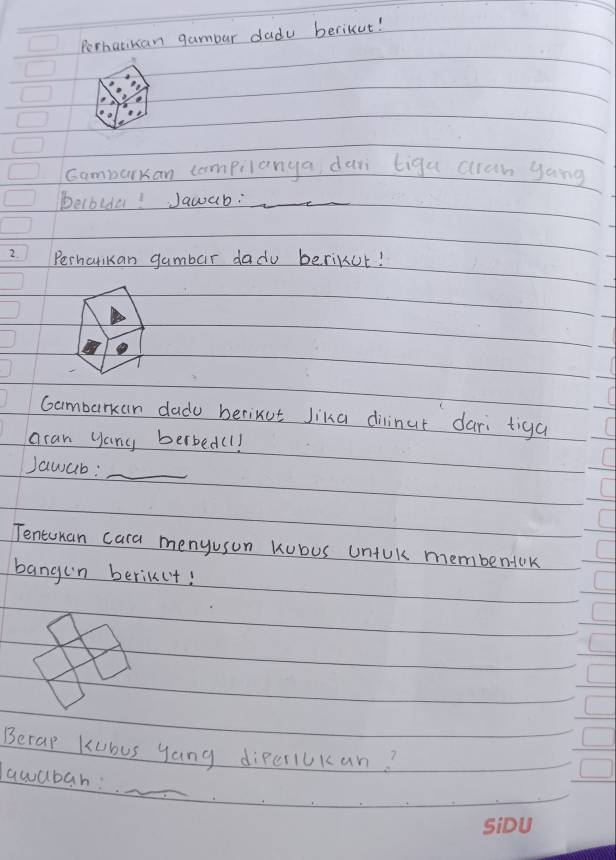 Perhatikan gambar dadu berikut!
Gambarkan tampilanya, dari tiga arah yang
berbeda! Jawab:
2. Perhatikan gambar dadu berikut!
Gambarkan dadu berikut Jika dilihat dari tiga
arah yang berbeda!
Jawab:
Tentukan Cara menyusun kubus untuk membentuk
bangun berikut!
Berap kubus yang diperlukan?
Jawaban:
SiDU